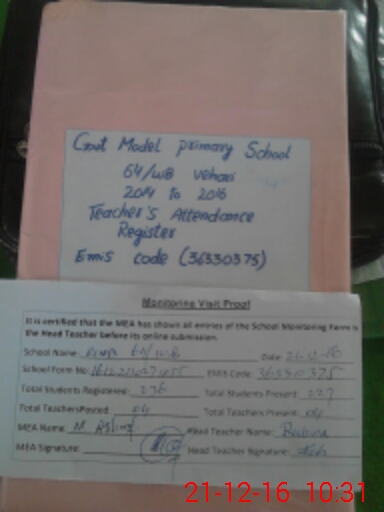 Govt Model primary School
64/WB Vehari
2014 to 2016
Teacher's Attendance
Register
Emis code (36330375)
Monitoring Visit Proof
It is certified that the MEA has shown all entries of the School Monitoring Form to
the Head Teacher before its online submission.
School Name: 64/WB Date: 21-12-16
School Form No: EMIS Code: 36330375
Total Students Registered: 236 Total Students Present: 227
Total Teachers Posted: 04 Total Teachers Present: 04
MEA Name: M Aslam Head Teacher Name: Rubina
MEA Signature: Head Teacher Signature:
21-12-16 10:31